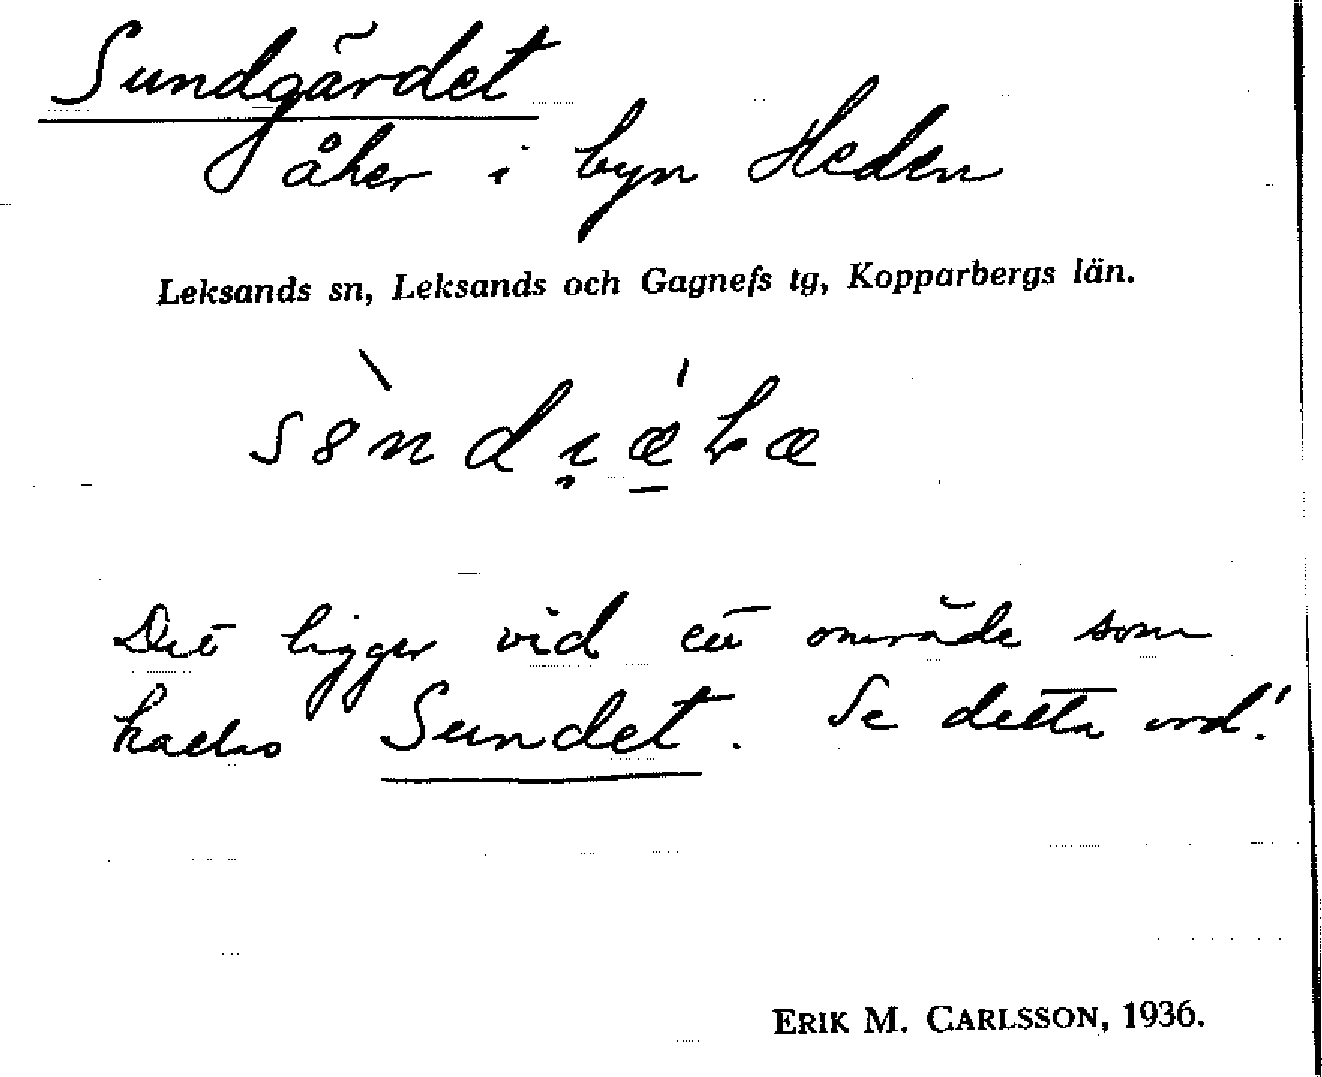 Sundgärdet
åker i byn Heden
Leksands sn, Leksands och Gagnefs tg, Kopparbergs län.
Det ligger vid ett område som
kallas Sundet. Se detta ord!
ERIK M. CARLSSON, 1936.